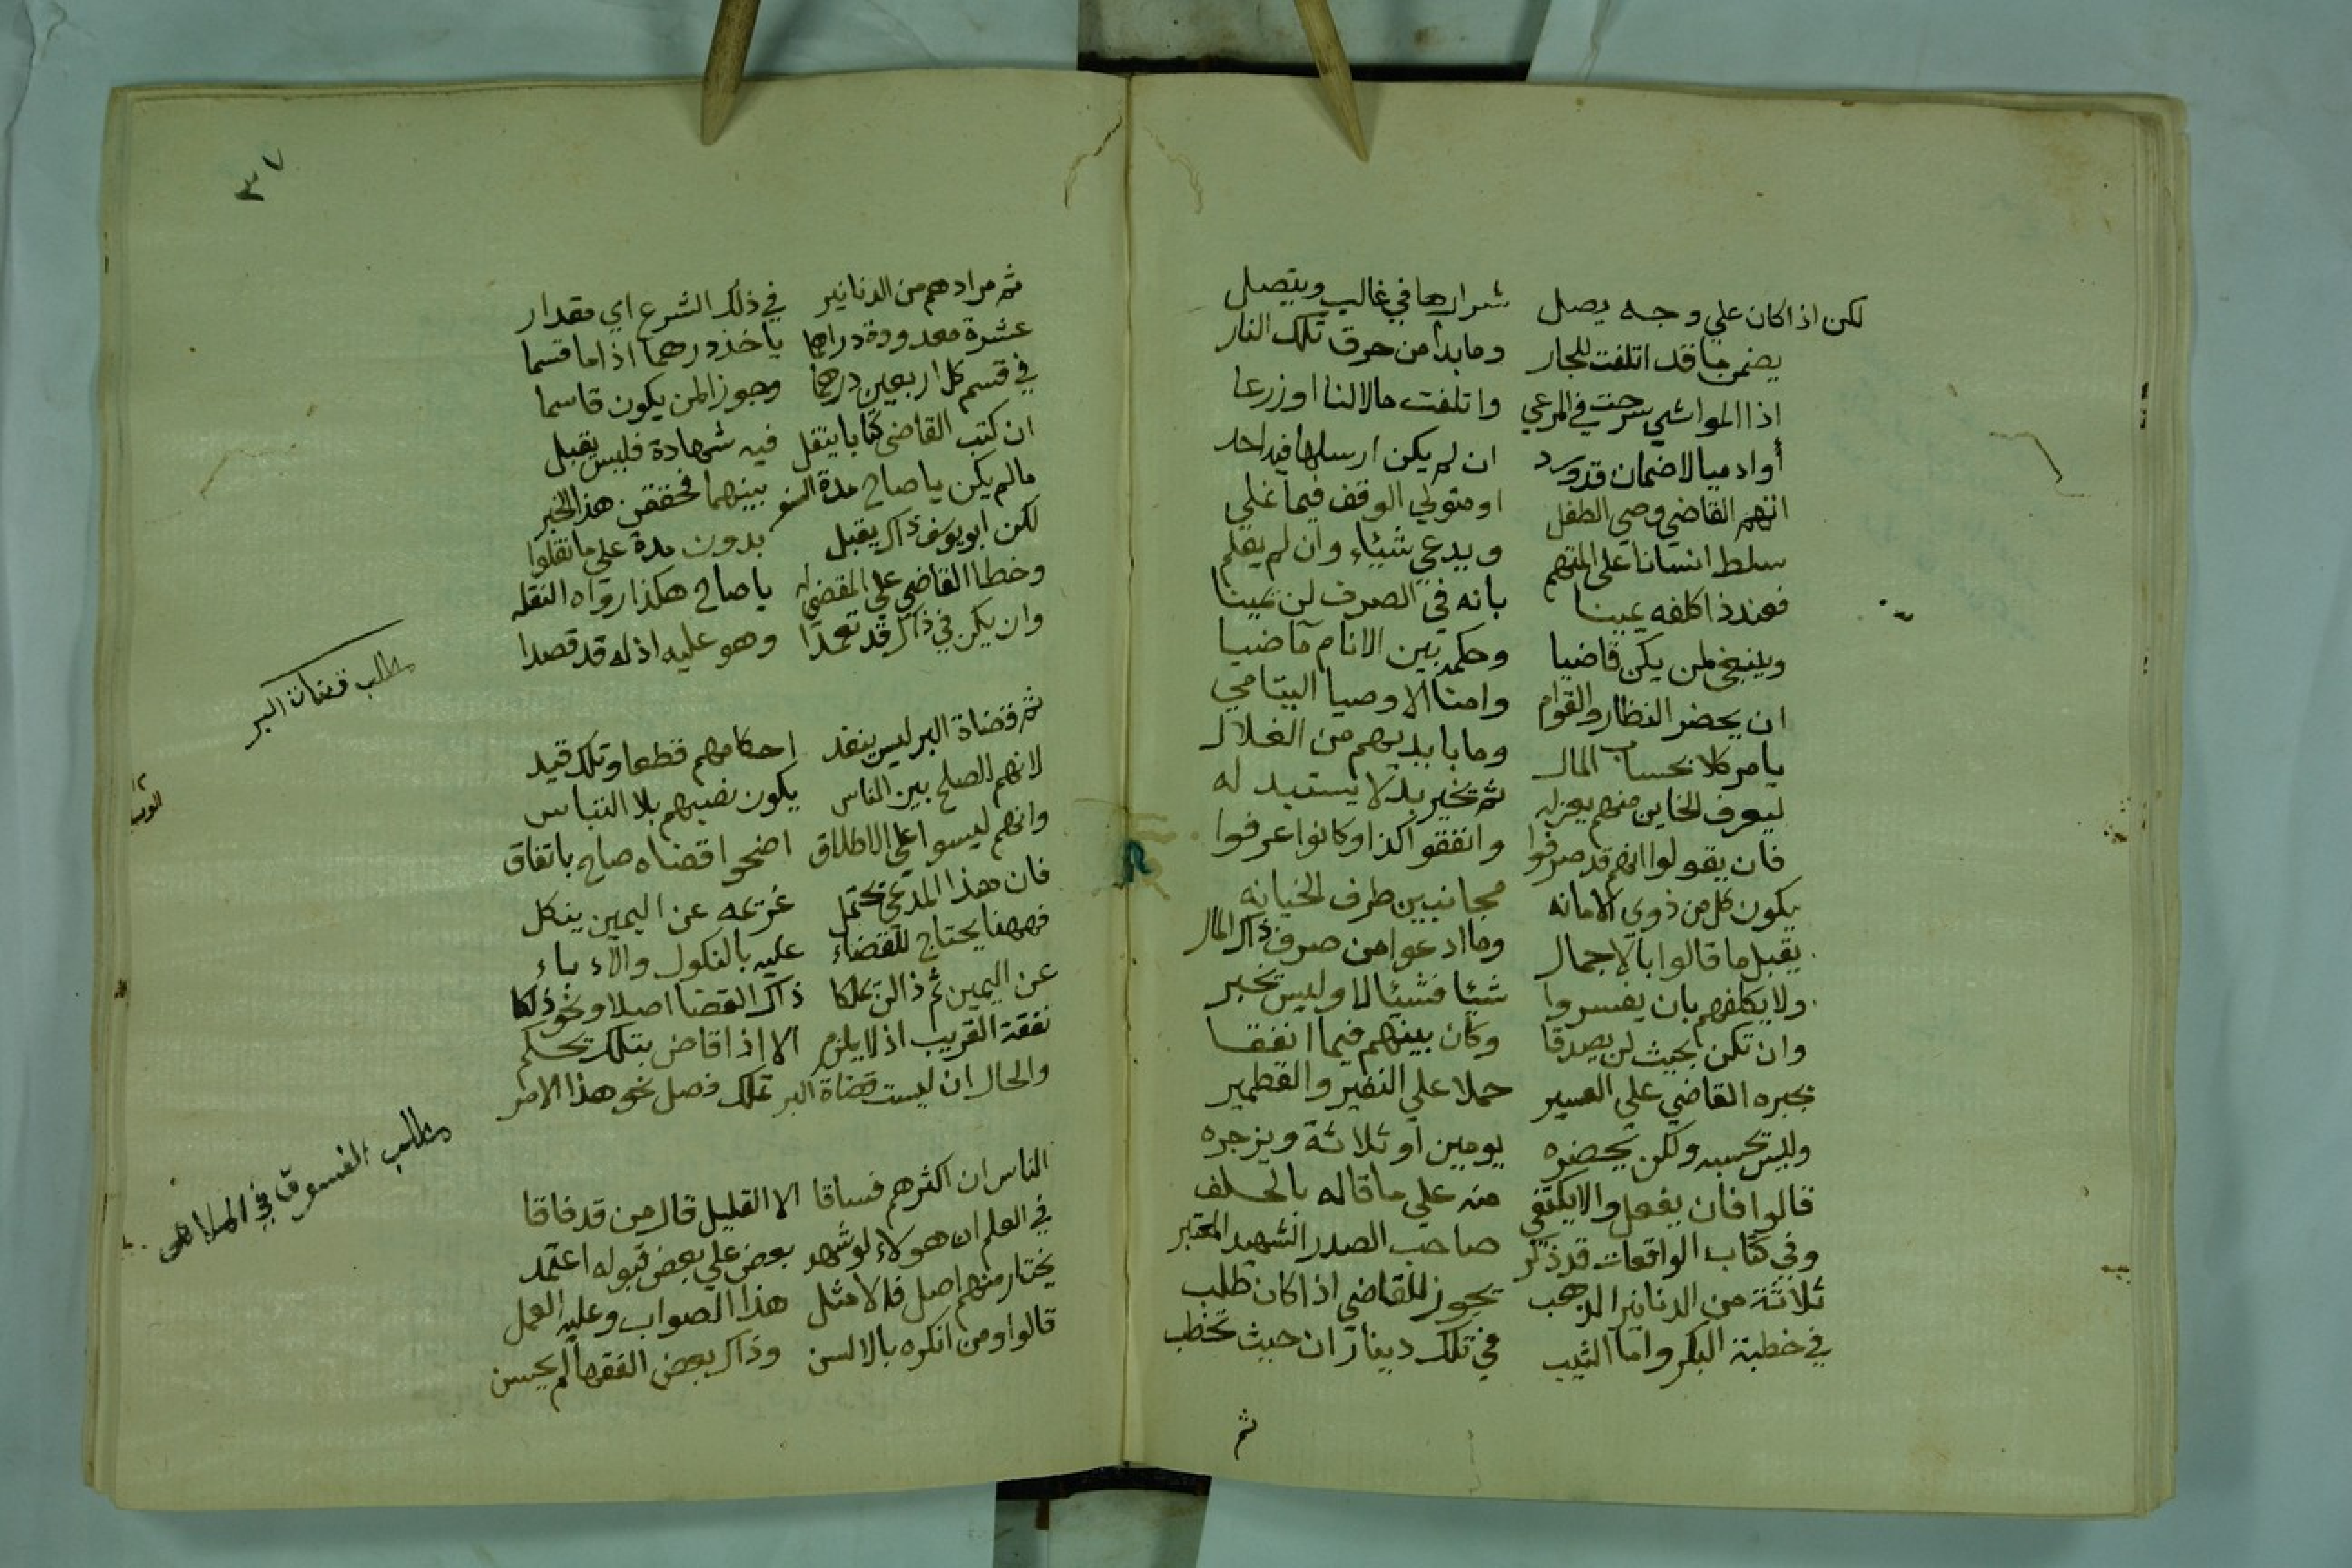 لكن اذا كان علي وجه يصل شرارها في غالب ويتصل
يضمن ما قد اتلفت للجار وما بدا من حرق تلك النار
اذا المواشي سرحت في المرعي واتلفت مالا لنا او زرعا
أو ادميا لا ضمان قد ورد ان لم يكن ارسلها فيه احد
اتهم القاضي وصي الطفل او متولي الوقف فيما غلي
سلط انسانا على المتهم ويدعي شيئاء وان لم يعلم
فعند ذا كلفه يمينا بانه في الصرف لن يمينا
وينبغي لمن يكن قاضيا وحكمه بين الانام ماضيا
ان يحضر النظار والقوام وامنا الاوصيا اليتامي
يامر كلا بحساب المال وما بايديهم من الغلال
ليعرف الخاين منهم يعزله ثم بخير بدلا يستبدله
فان يقولوا انهم قد صرفوا وانفقوا كذا وكانوا عرفوا
يكون كل من ذوي الامانه مجانبين طرف الخيانه
يقبل ما قالوا بالاجمال وما ادعوا من صرف ذاك المال
ولا يكلفهم بان يفسروا شيئا فشيئا لا وليس تخبر
وان تكن بحيث لن يصدقا وكان بينهم فيما انفقا
يجبره القاضي على العسير حملا علي النقير والقطمير
وليس تحبسه ولكن يحضره يومين او ثلاثة ويزجره
قالوا فان يفعل والا يكتفي منه علي ما قاله بالحلف
وفي كتاب الواقعات قد ذكر صاحب الصدر الشهيد المعتبر
ثلاثة من الدنانير الذهب يجوز للقاضي اذا كان طلب
في خطبة البكر واما الثيب في تلك ديناران حيث تخطب
ثم
٣٧
ثم مرادهم من الدنانير في ذلك الشرع اي مقدار
عشرة معدودة دراهما ياخذ درهما اذا ما قسما
في قسم كل اربعين درهما وجوز المن يكون قاسما
ان كتب القاضي كتابا ينقل فيه شهادة فليس يقبل
مالم يكن يا صاح مدة السفر بينهما فحققن هذا الخبر
لكن ابو يوسف ذاك يقبل بدون مدة علي ما نقلوا
وخطا القاضي علي المقضي له يا صاح هكذا رواه النقله
وان يكن في ذاك قد تعمدا وهو عليه اذ له قد قصدا
مطلب قضات البر
ثم قضاة البر ليس ينفذ احكامهم قطعا وتلك قيد
لانهم للصلح بين الناس يكون نصبهم بلا التباس
وانهم ليسوا على الاطلاق اضحوا قضاه صاح باتفاق
فان هذا المدعي يحتمل غريمه عن اليمين ينكل
فههنا يحتاج للقضاء عليه بالنكول والاء باء
عن اليمين ثم ذا لن يملكا ذاك القضا اصلا ونحو ذلكا
نفقة القريب اذ لا يلزم الا اذا قاض بتلك يحكم
والحال ان ليست قضاة البر تملك فصل نحو هذا الامر
مطلب الفسوق في الملاهي
الناس ان اكثرهم فساقا الا القليل قال من قد فاقا
في العلم ان هولاء لو شهد بعض علي بعض قبوله اعتمد
يختار منهم اصل فالامثل هذا الصواب وعليه العمل
قالوا ومن انكره بالالسن وذاك بعض الفقها لم يحسن